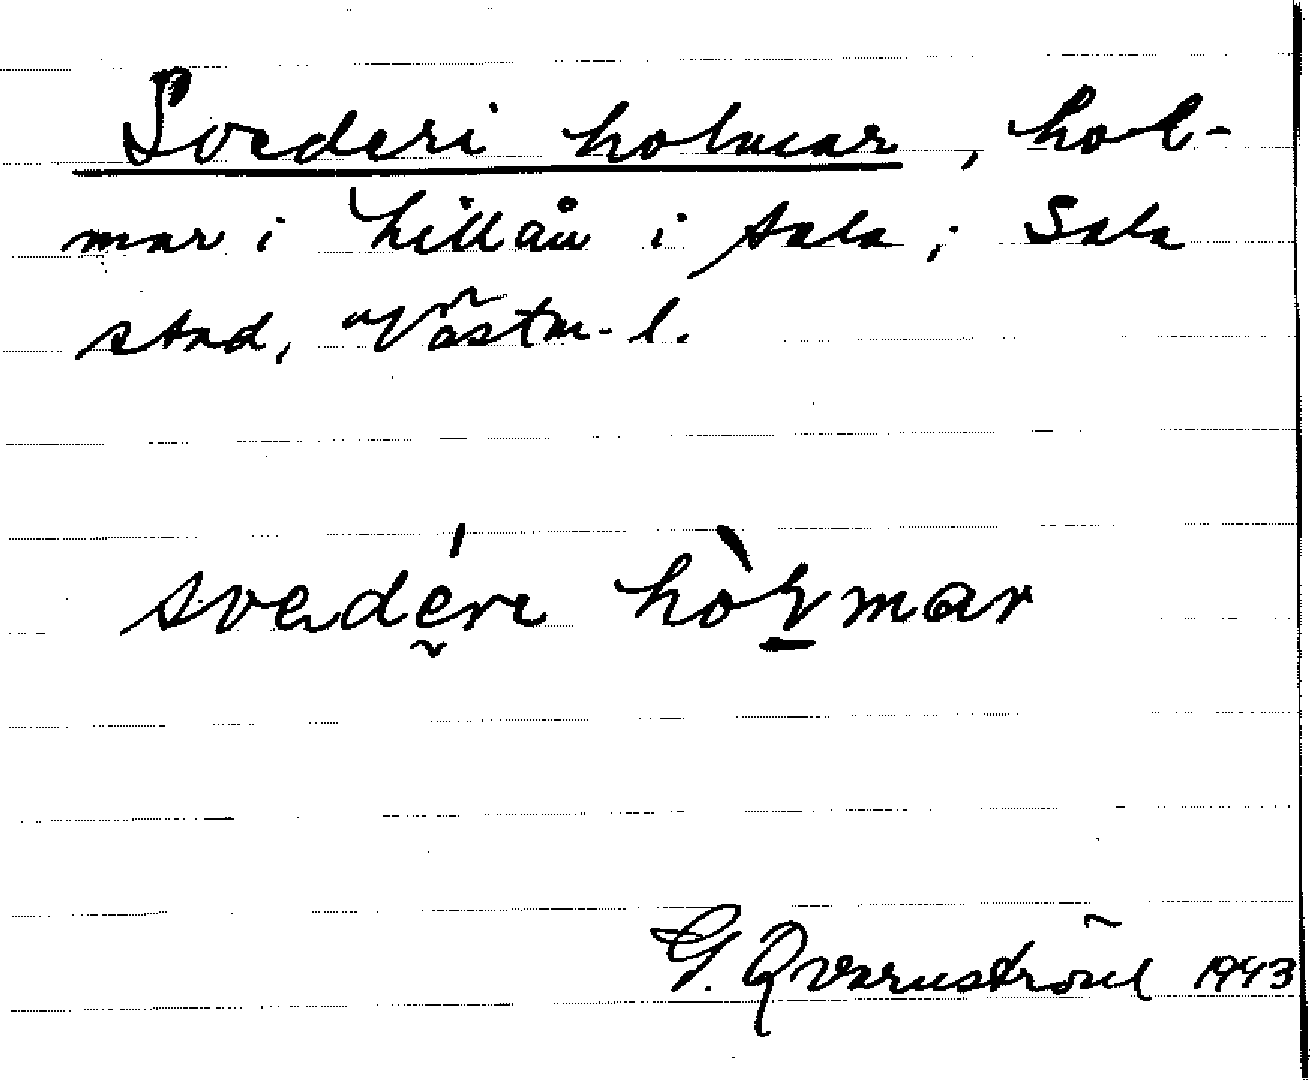 Svederi holmar, hol-
mar i Lillån i Sala; Sala
stad, Västm. l.
svedéri hòlmar
G. Qvarnström 1943